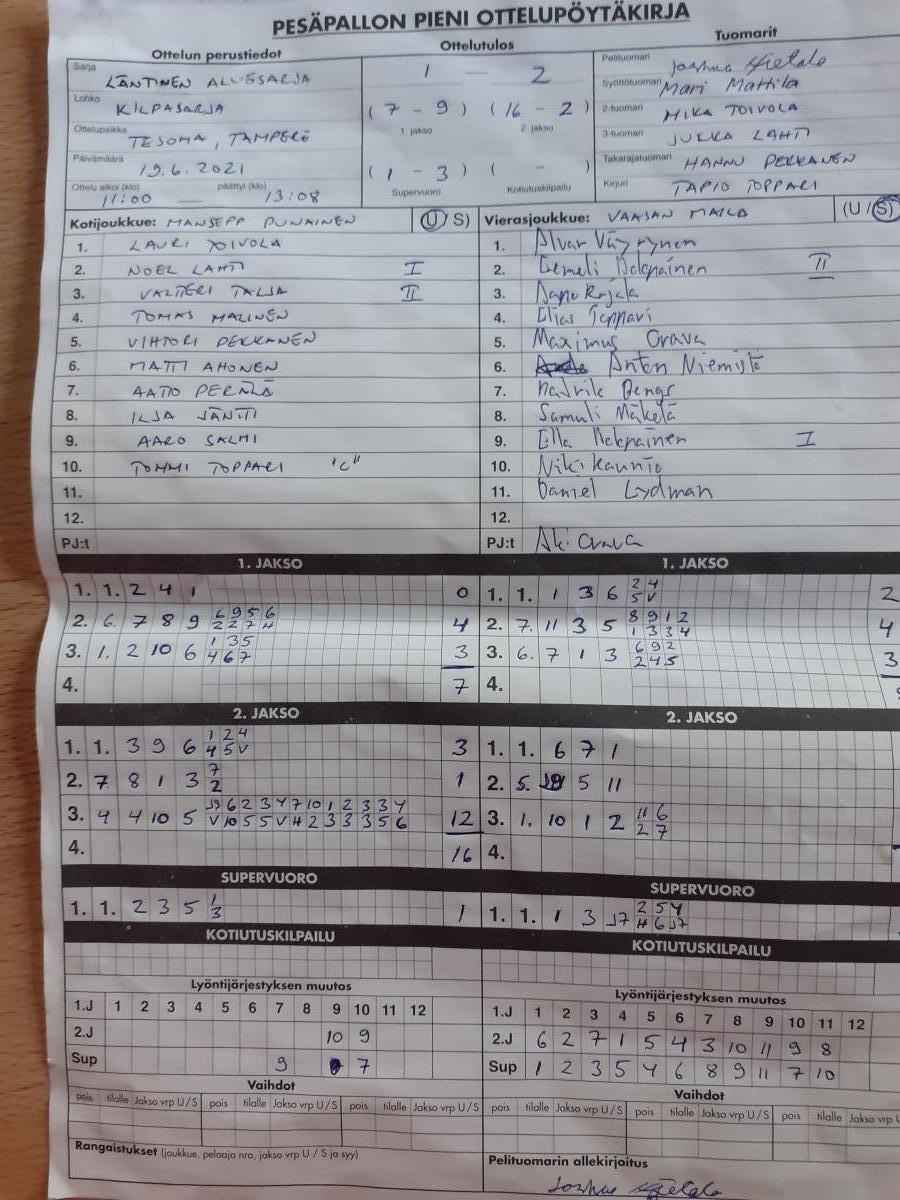 PESÄPALLON PIENI OTTELUPÖYTÄKIRJA
Ottelun perustiedot
Ottelutulos
Tuomarit
Sarja LÄNTINEN ALUESARJA
Lohko KILPASARJA
Ottelupaikka TESOMA, TAMPERE
Päivämäärä 19.6.2021
Ottelu alkoi (klo) päättyi (klo)
11:00 — 13:08
1 — 2
(7 - 9) (16 - 2)
1. jakso 2. jakso
(1 - 3) ( - )
Supervuoro Kotiutuskilpailu
Pelituomari Joshua
Syöttötuomari Mari Mattila
2-tuomari MIKA TOIVOLA
3-tuomari JUKKA LAHTI
Takarajatuomari HANNU PEKKANEN
Kirjuri TAPIO TOPPARI
Kotijoukkue: MANSEPP PUNAINEN (U/S)
1. LAURI TOIVOLA
2. NOEL LAHTI I
3. VALTTERI TALJA II
4. TOMAS MALINEN
5. VIHTORI PEKKANEN
6. MATTI AHONEN
7. AATTO PERÄLÄ
8. ILJA JÄNTTI
9. AARO SALMI
10. TOMMI TOPPARI "C"
11.
12.
PJ:t
Vierasjoukkue: VAASAN MAILA (U/S)
1. Alvar Väyrynen
2. Eemeli II
3.
4. Elias Toppari
5. Maximus Orava
6. Anton Niemistö
7. Bengs
8. Samuli Mäkelä
9. I
10. Niki Kaunio
11. Daniel Lydman
12.
PJ:t Aki Orava
1. JAKSO
1. 1. 2 4 1 0
2. 6. 7 8 9 6 9 5 6 4
2 2 7 H
3. 1. 2 10 6 1 3 5 3
4 6 7
4. 7
1. JAKSO
1. 1. 1 3 6 2 4 2
5 V
2. 7. 11 3 5 8 9 1 2 4
1 3 3 4
3. 6. 7 1 3 6 9 2 3
2 4 5
4.
2. JAKSO
1. 1. 3 9 6 1 2 4 3
4 5 V
2. 7 8 1 3 7 1
2
3. 4 4 10 5 J9 6 2 3 4 7 10 1 2 3 3 4 12
V 10 5 5 V H 2 3 3 3 5 6
4. 16
2. JAKSO
1. 1. 6 7 1
2. 5. 5 11
3. 1. 10 1 2 11 6
2 7
4.
SUPERVUORO
1. 1. 2 3 5 1 1
3
SUPERVUORO
1. 1. 1 3 J7 2 5 4
H 6 J7
KOTIUTUSKILPAILU
KOTIUTUSKILPAILU
Lyöntijärjestyksen muutos
1.J 1 2 3 4 5 6 7 8 9 10 11 12
2.J 10 9
Sup 9 7
Lyöntijärjestyksen muutos
1.J 1 2 3 4 5 6 7 8 9 10 11 12
2.J 6 2 7 1 5 4 3 10 11 9 8
Sup 1 2 3 5 4 6 8 9 11 7 10
Vaihdot
pois tilalle Jakso vrp U/S pois tilalle Jakso vrp U/S pois tilalle Jakso vrp U/S
Vaihdot
pois tilalle Jakso vrp U/S pois tilalle Jakso vrp U/S pois tilalle Jakso vrp U
Rangaistukset (joukkue, pelaaja nro, jakso vrp U / S ja syy)
Pelituomarin allekirjoitus